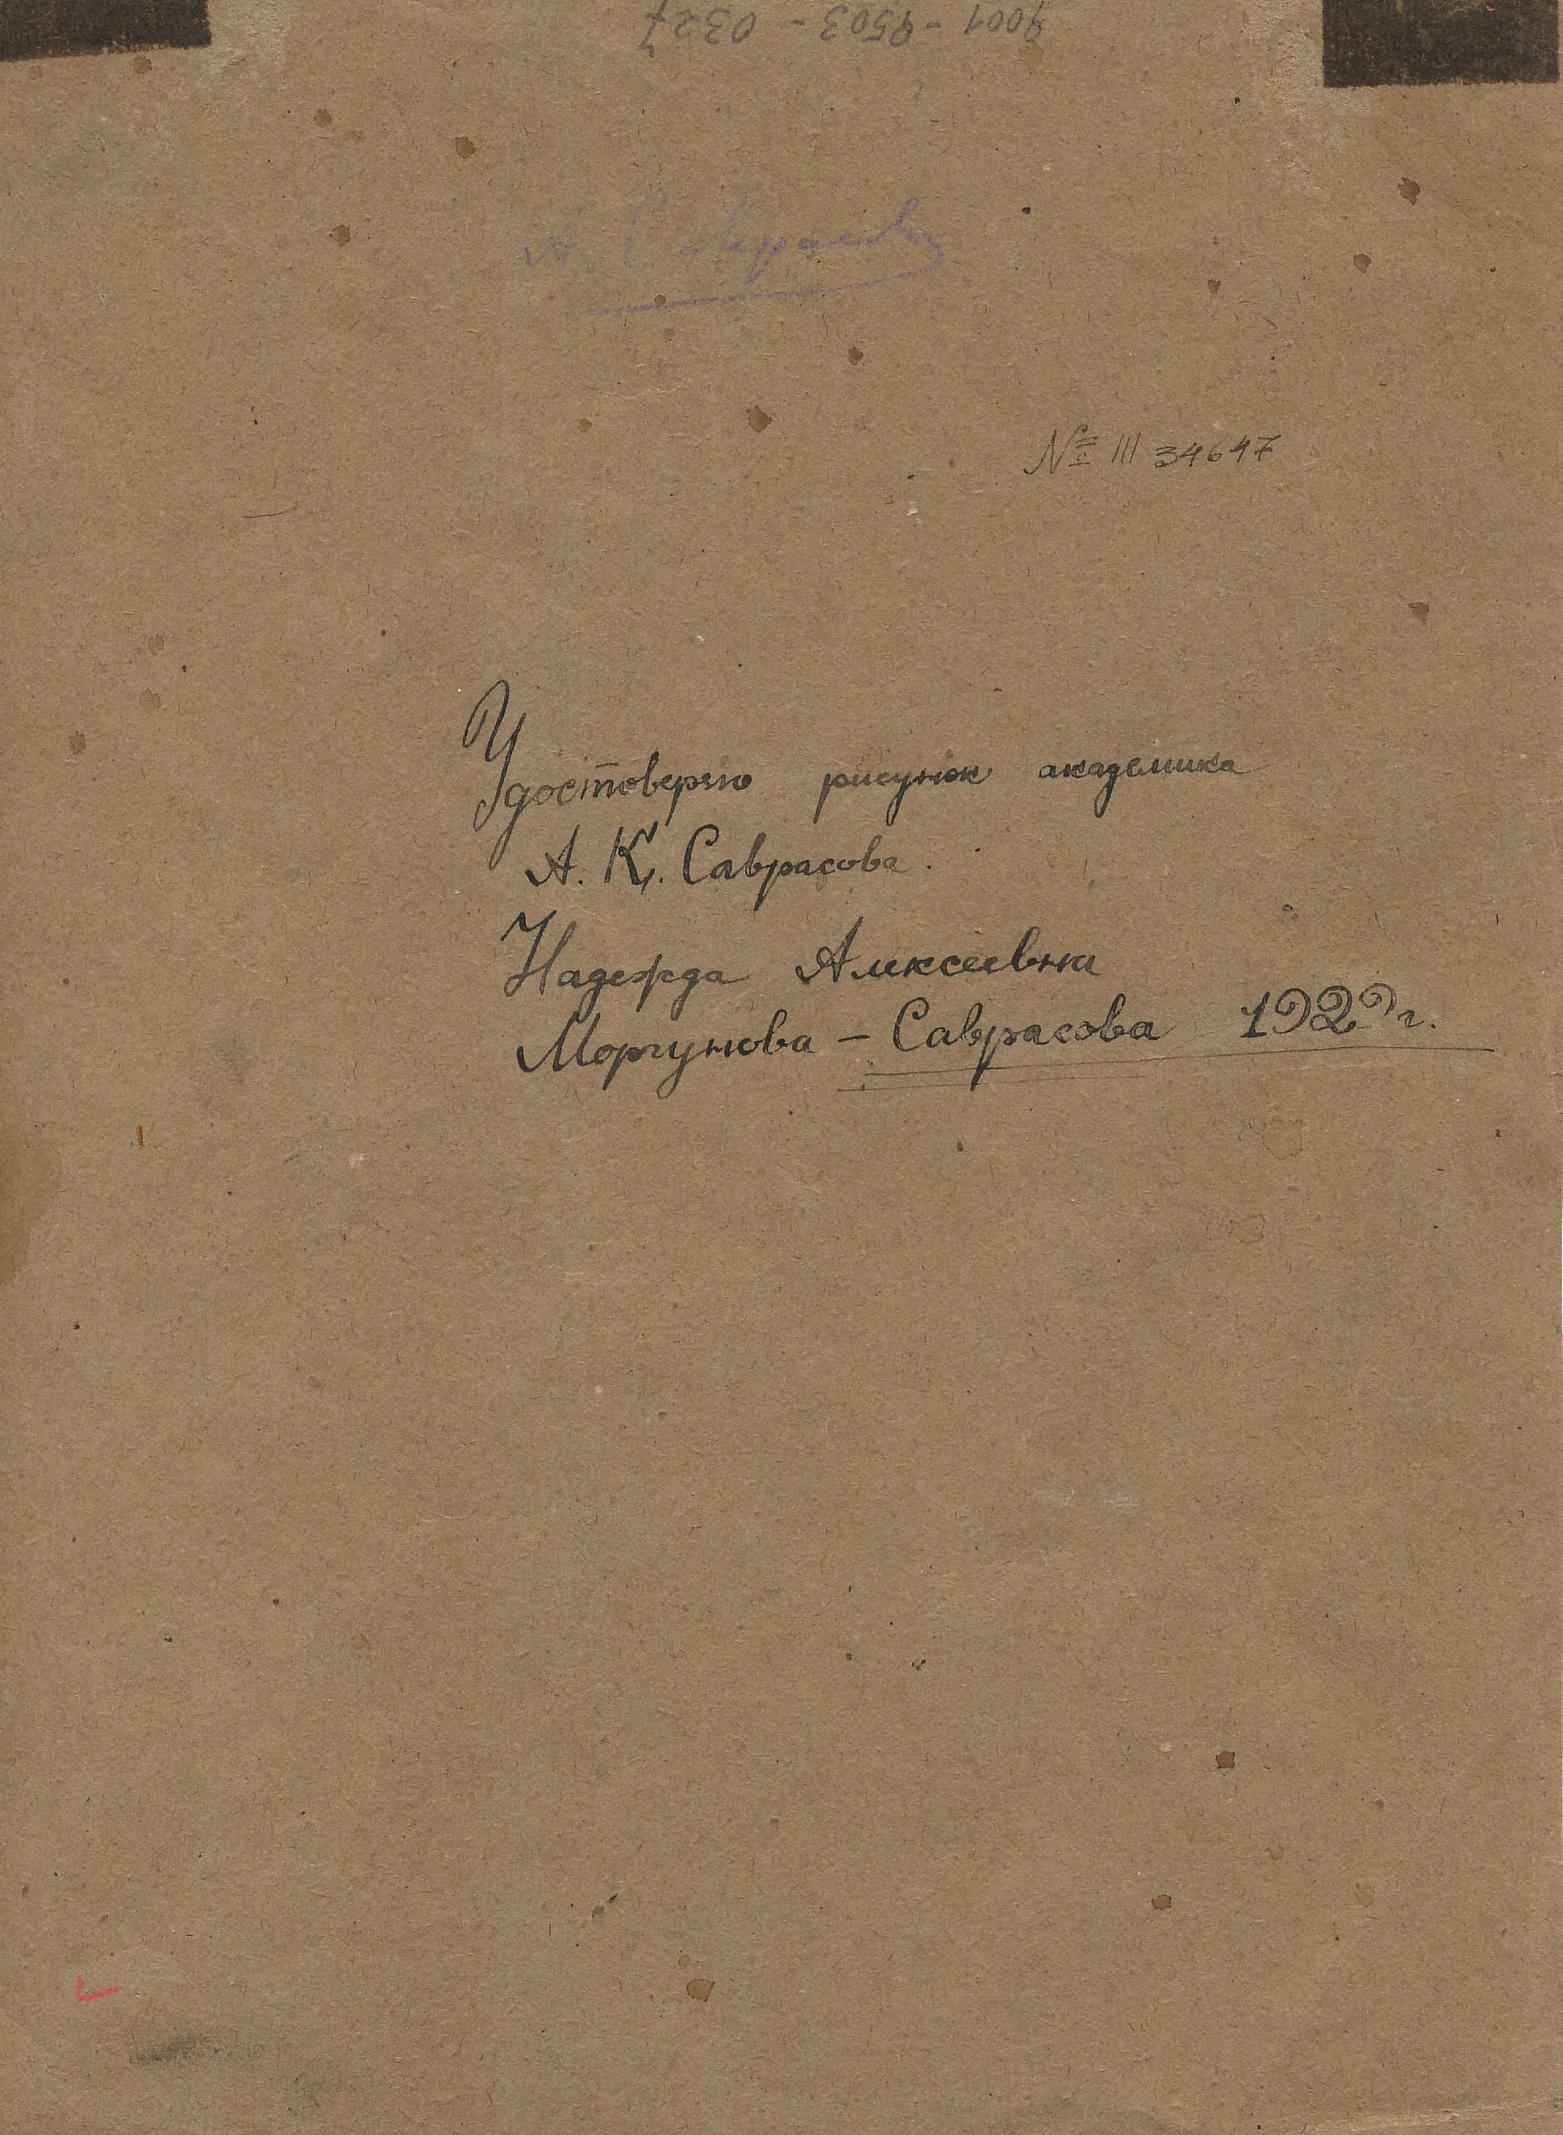 А. Саврасов
№ III 34647
Удостоверяю рисунок академика
А. К. Саврасова.
Надежда Алексеевна
Моргунова – Саврасова 1929 г.